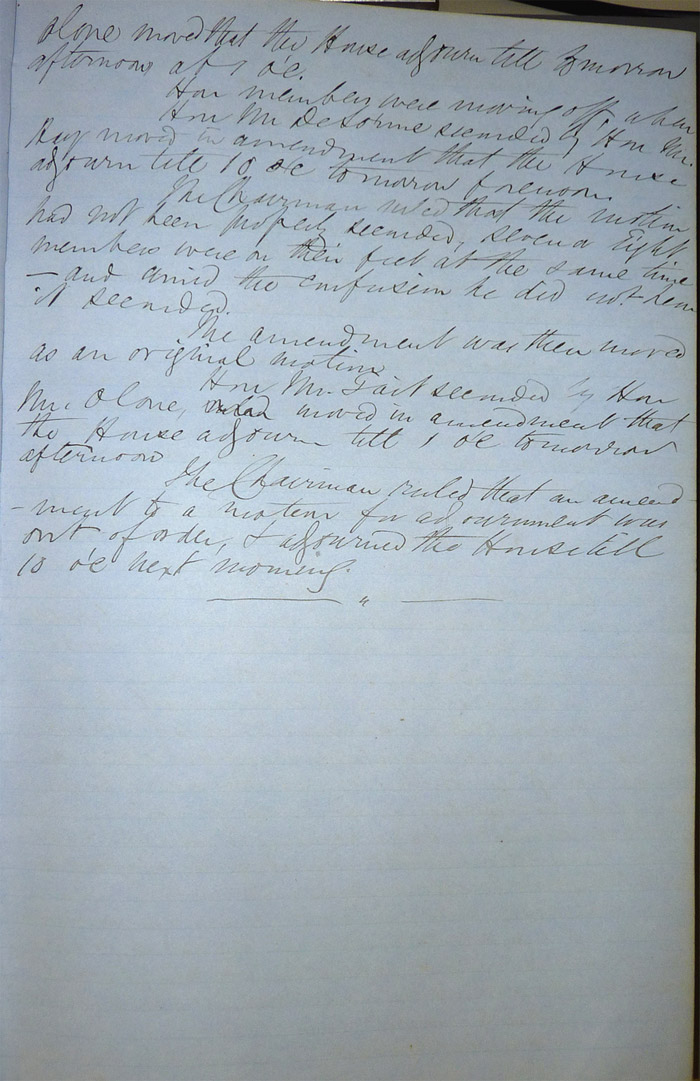 Alone moved that the House adjourn till tomorrow
afternoon at 1 o'c.
Hon members were moving off, when
Hon Mr DeCosmos seconded by Hon Mr.
Ray moved in amendment that the House
adjourn till 10 oc tomorrow forenoon.
The Chairman ruled that the motion
had not been properly seconded, seven or eight
members were on their feet at the same time
— and amid the confusion he did not hear
it seconded.
The amendment was then moved
as an original motion
Hon Mr. Tait seconded by Hon
Mr. Alone, moved in amendment that
the House adjourn till 1 oc tomorrow
afternoon
The Chairman ruled that an amend
-ment to a motion for adjournment was
out of order, & adjourned the House till
10 o'c next morning.